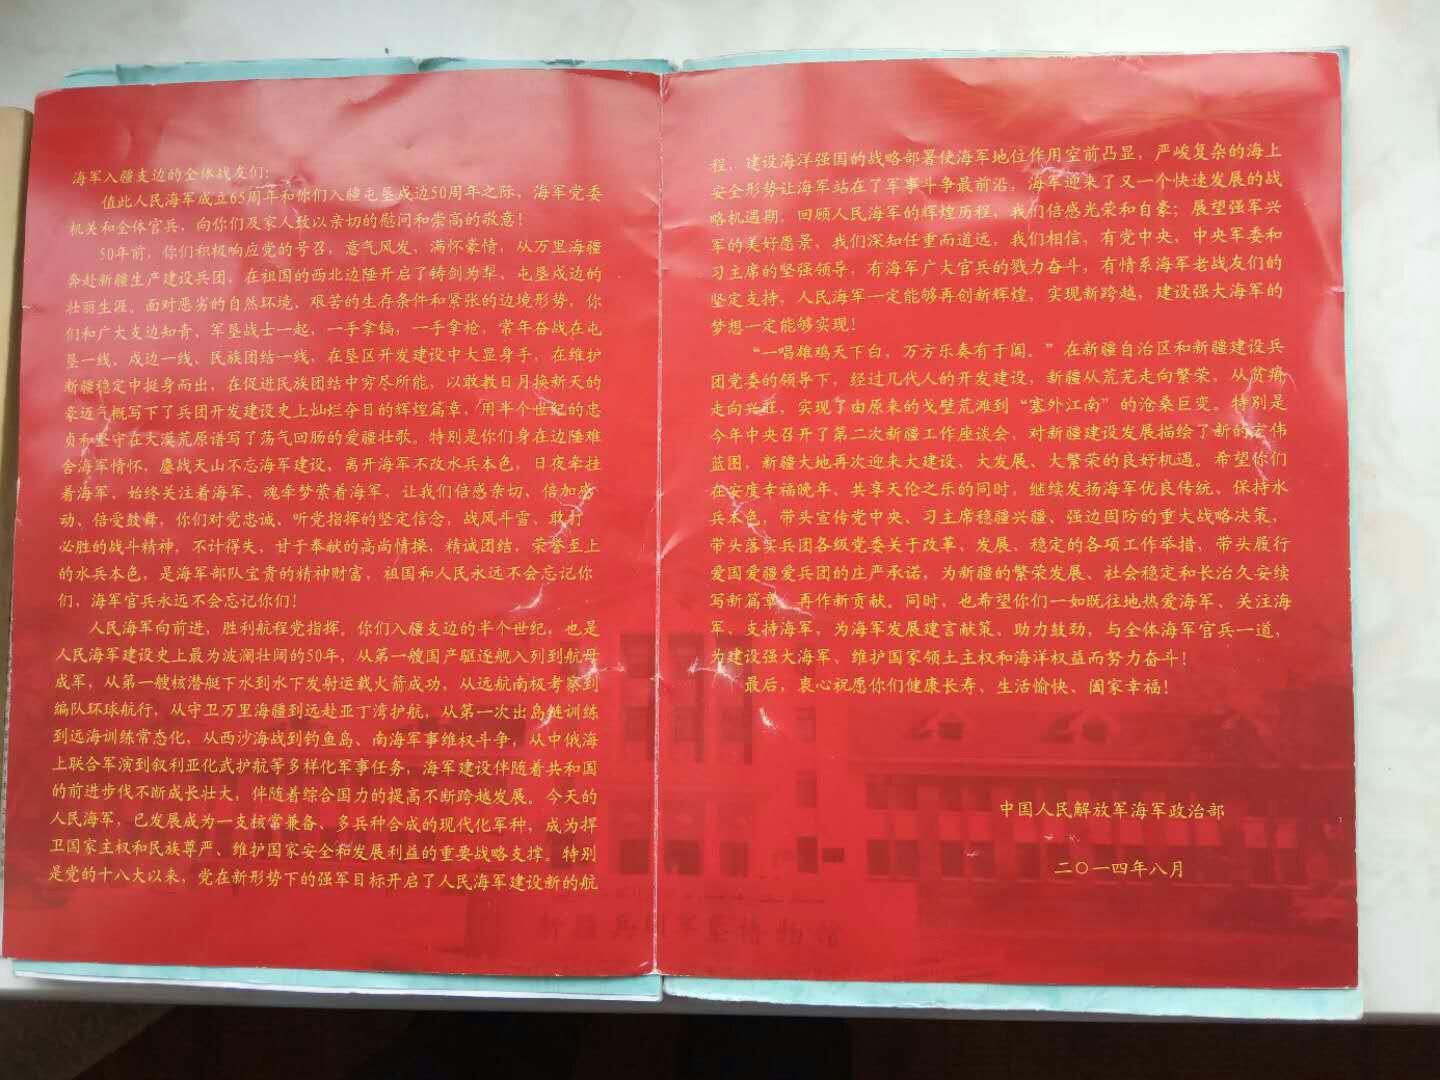 海军入疆支边的全体战友们：
值此人民海军成立65周年和你们入疆屯垦戍边50周年之际，海军党委
机关和全体官兵，向你们及家人致以亲切的慰问和崇高的敬意！
50年前，你们积极响应党的号召，意气风发，满怀豪情，从万里海疆
奔赴新疆生产建设兵团，在祖国的西北边陲开启了铸剑为犁、屯垦戍边的
壮丽生涯。面对恶劣的自然环境，艰苦的生存条件和紧张的边境形势，你
们和广大支边知青，军垦战士一起，一手拿镐，一手拿枪，常年奋战在屯
垦一线、戍边一线、民族团结一线，在垦区开发建设中大显身手，在维护
新疆稳定中挺身而出，在促进民族团结中穷尽所能，以敢教日月换新天的
豪迈气概写下了兵团开发建设史上灿烂夺目的辉煌篇章，用半个世纪的忠
贞和坚守在大漠荒原谱写了荡气回肠的爱疆壮歌。特别是你们身在边陲难
舍海军情怀，鏖战天山不忘海军建设，离开海军不改水兵本色，日夜牵挂
着海军，始终关注着海军、魂牵梦萦着海军，让我们倍感亲切、倍加感
动、倍受鼓舞，你们对党忠诚、听党指挥的坚定信念，战风斗雪、敢打
必胜的战斗精神，不计得失、甘于奉献的高尚情操，精诚团结，荣誉至上
的水兵本色，是海军部队宝贵的精神财富，祖国和人民永远不会忘记你
们，海军官兵永远不会忘记你们！
人民海军向前进，胜利航程党指挥。你们入疆支边的半个世纪，也是
人民海军建设史上最为波澜壮阔的50年，从第一艘国产驱逐舰入列到航母
成军，从第一艘核潜艇下水到水下发射运载火箭成功，从远航南极考察到
编队环球航行，从守卫万里海疆到远赴亚丁湾护航，从第一次出岛链训练
到远海训练常态化，从西沙海战到钓鱼岛、南海军事维权斗争，从中俄海
上联合军演到叙利亚化武护航等多样化军事任务，海军建设伴随着共和国
的前进步伐不断成长壮大，伴随着综合国力的提高不断跨越发展。今天的
人民海军，已发展成为一支核常兼备、多兵种合成的现代化军种，成为捍
卫国家主权和民族尊严、维护国家安全和发展利益的重要战略支撑。特别
是党的十八大以来，党在新形势下的强军目标开启了人民海军建设新的航
程，建设海洋强国的战略部署使海军地位作用空前凸显，严峻复杂的海上
安全形势让海军站在了军事斗争最前沿，海军迎来了又一个快速发展的战
略机遇期，回顾人民海军的辉煌历程，我们倍感光荣和自豪；展望强军兴
军的美好愿景，我们深知任重而道远，我们相信，有党中央，中央军委和
习主席的坚强领导，有海军广大官兵的戮力奋斗，有情系海军老战友们的
坚定支持，人民海军一定能够再创新辉煌，实现新跨越，建设强大海军的
梦想一定能够实现！
“一唱雄鸡天下白，万方乐奏有于阗。”在新疆自治区和新疆建设兵
团党委的领导下，经过几代人的开发建设，新疆从荒芜走向繁荣，从贫瘠
走向兴旺，实现了由原来的戈壁荒滩到“塞外江南”的沧桑巨变。特别是
今年中央召开了第二次新疆工作座谈会，对新疆建设发展描绘了新的宏伟
蓝图，新疆大地再次迎来大建设、大发展、大繁荣的良好机遇。希望你们
在安度幸福晚年、共享天伦之乐的同时，继续发扬海军优良传统、保持水
兵本色，带头宣传党中央、习主席稳疆兴疆、强边固防的重大战略决策，
带头落实兵团各级党委关于改革、发展、稳定的各项工作举措，带头履行
爱国爱疆爱兵团的庄严承诺，为新疆的繁荣发展、社会稳定和长治久安续
写新篇章，再作新贡献。同时，也希望你们一如既往地热爱海军、关注海
军、支持海军，为海军发展建言献策、助力鼓劲，与全体海军官兵一道，
为建设强大海军、维护国家领土主权和海洋权益而努力奋斗！
最后，衷心祝愿你们健康长寿、生活愉快、阖家幸福！
中国人民解放军海军政治部
二〇一四年八月
新疆兵团军垦博物馆